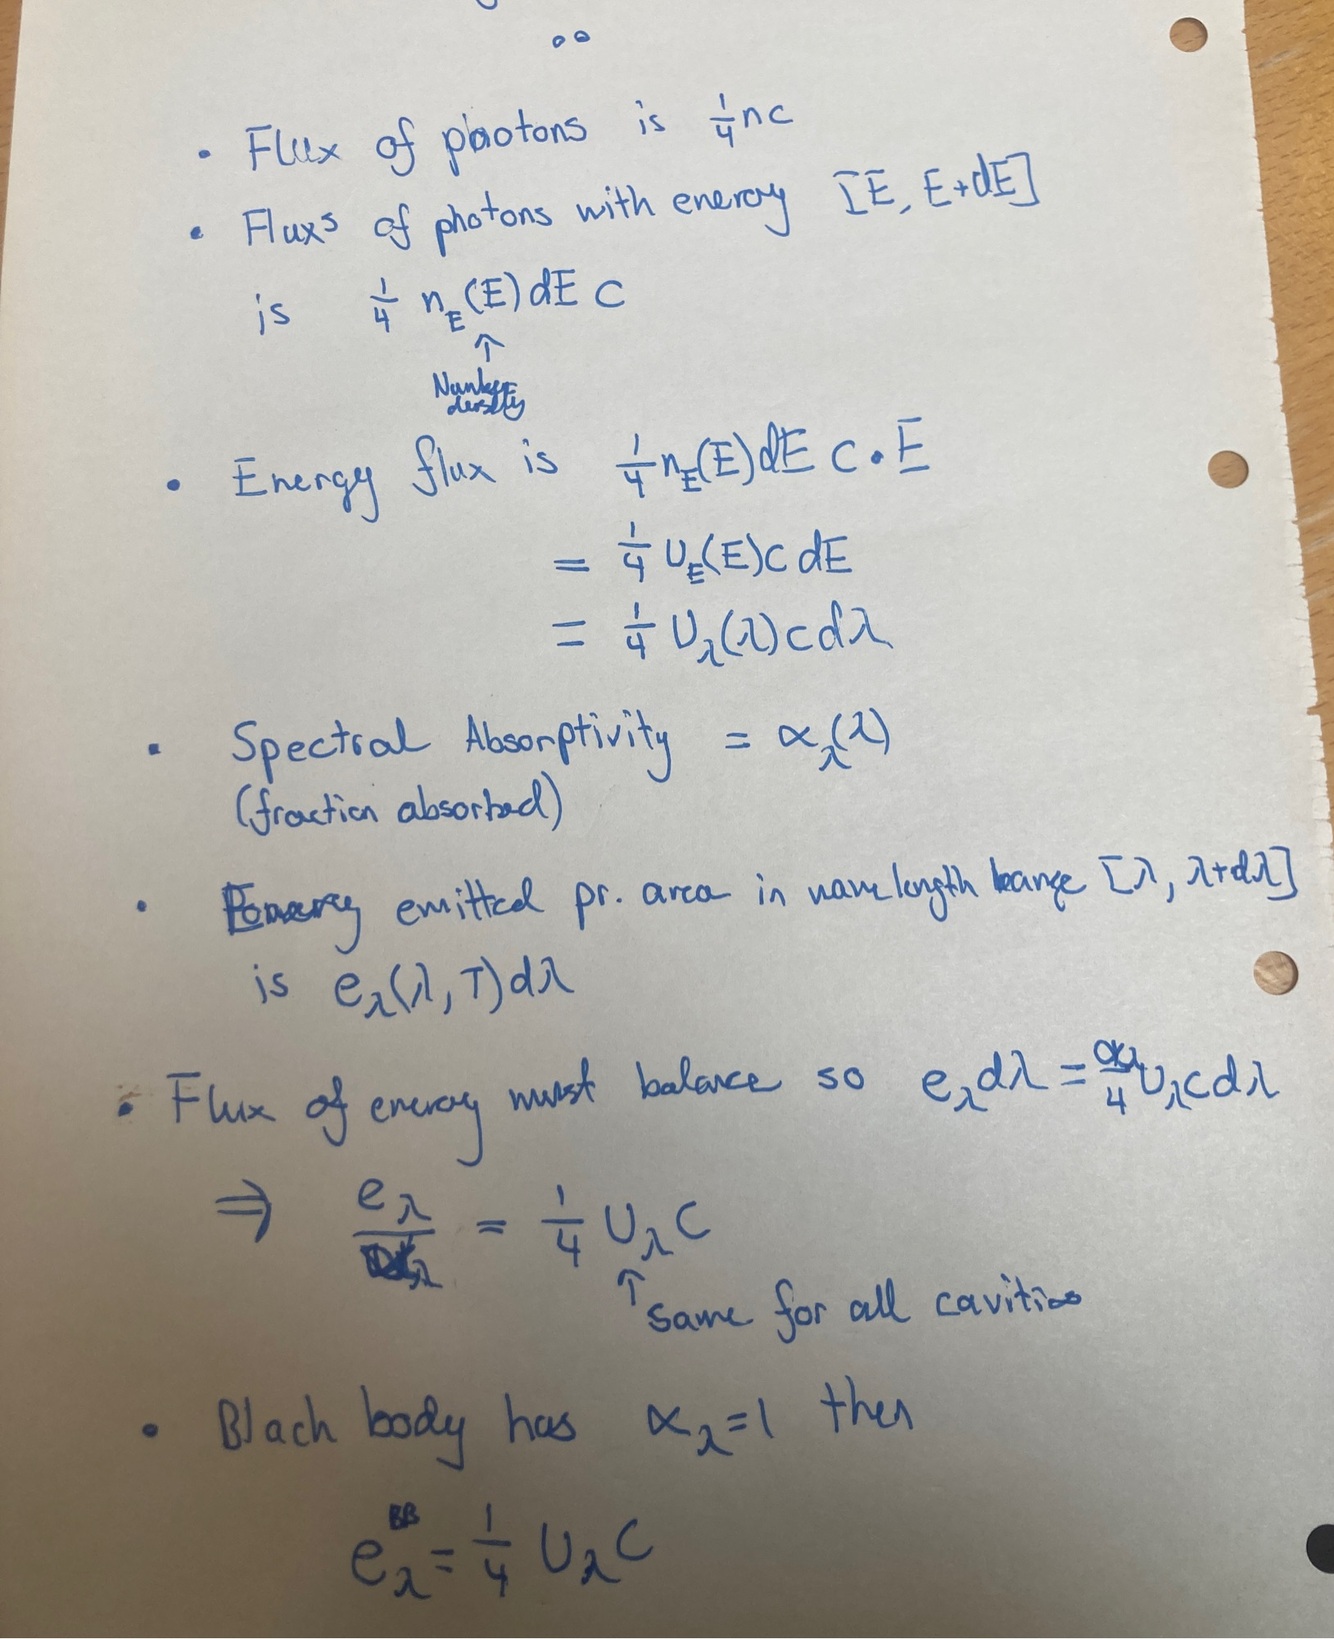 • Flux of photons is 1/4 nc
• Fluxs of photons with energy [E, E+dE]
is 1/4 n_E(E)dE c
↑
Number
density
• Energy flux is 1/4 n_E(E)dE c · E
= 1/4 U_E(E)c dE
= 1/4 U_λ(λ)c dλ
• Spectral Absorptivity = α_λ(λ)
(fraction absorbed)
• emitted pr. area in wavelength range [λ, λ+dλ]
is e_λ(λ,T)dλ
• Flux of energy must balance so e_λdλ = α_λ/4 U_λcdλ
⇒ e_λ/α_λ = 1/4 U_λ c
↑ same for all cavities
• Blach body has α_λ=1 then
e_λ^BB = 1/4 U_λ c